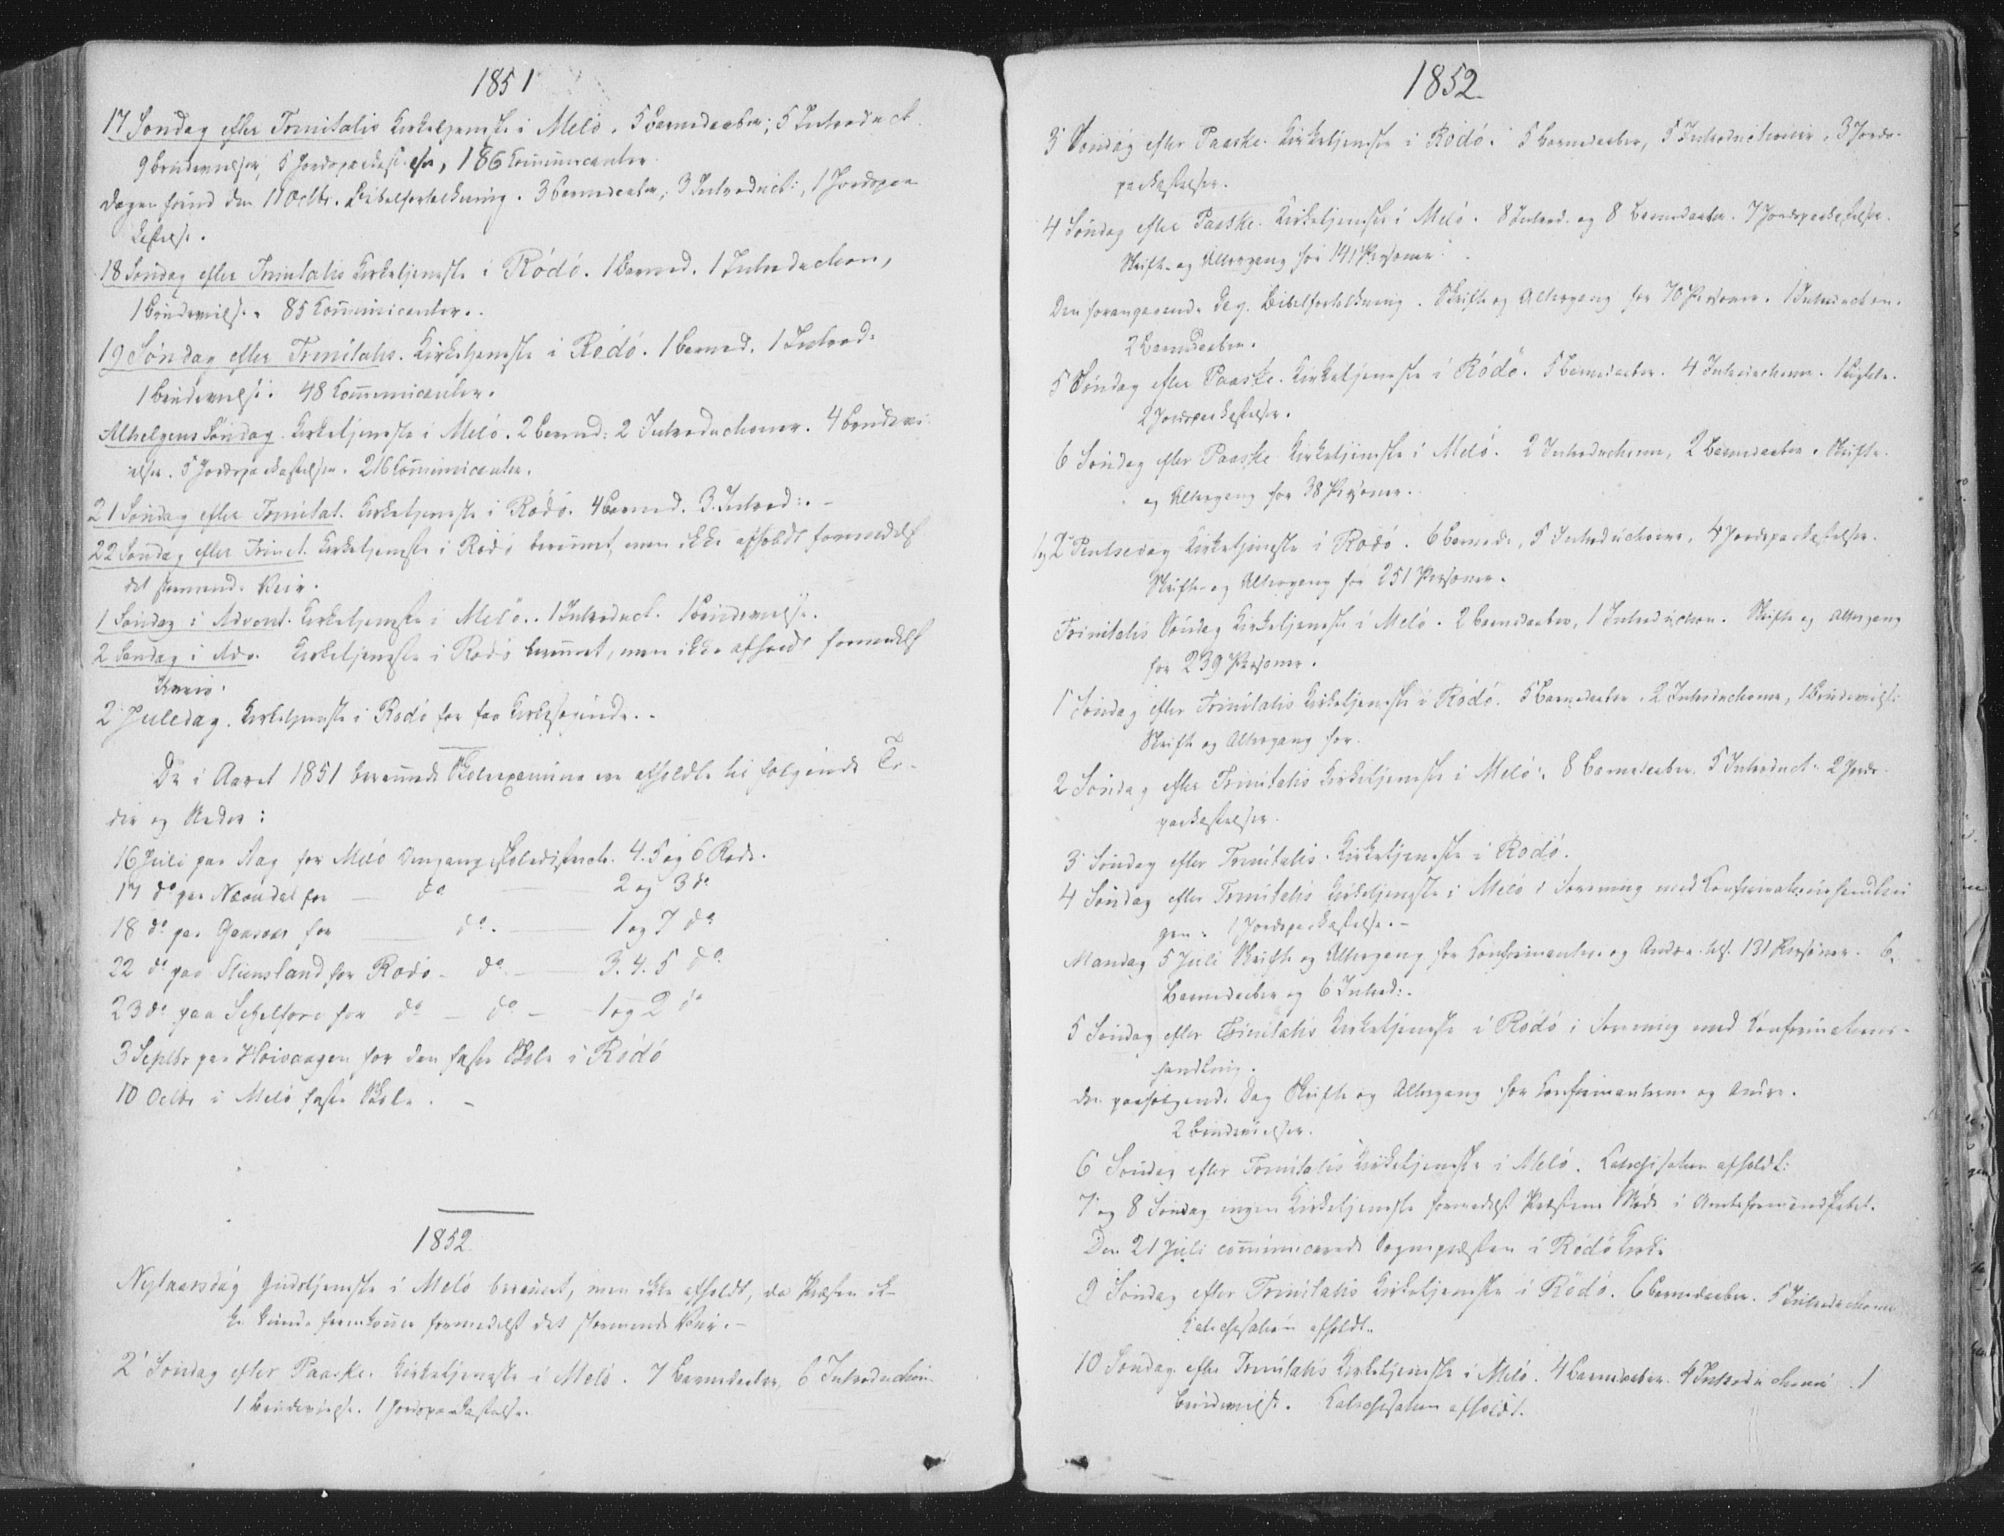 1851
17 Søndag efter Trinitatis Kirketjeneste i Melö. 5 Barnedaaber; 5 Introduct.
9 Brudevielser, 5 Jordspaakast. 186 Communicanter.
Dagen forud den 11 Octbr. Bibelforklaring. 3 Barnedaaber; 3 Introduct:, 1 Jordspaa-
kastelse.
18 Søndag efter Trinitatis Kirketjeneste i Rödö. 1 Barned. 1 Introduction,
1 Brudevielse. 85 Communicanter.
19 Søndag efter Trinitatis. Kirketjeneste i Rödö. 1 Barned. 1 Introd:
1 Brudevielse. 48 Communicanter.
Alhelgens Søndag. Kirketjeneste i Melö. 2 Barned: 2 Introductioner. 4 Brudevi-
elser. 5 Jordspaakastelser. 216 Communicanter.
21 Søndag efter Trinitat. Kirketjeneste i Rödö. 4 Barned. 3 Introd:. -
22 Søndag efter Trinit. Kirketjeneste i Rödö berammet, men ikke afholdt formedelst
det stormende Veir.
1 Søndag i Advent. Kirketjeneste i Melö. 1 Introduct. 1 Brudevielse.
2 Søndag i Adv. Kirketjeneste i Rödö berammet, men ikke afholdt formedelst
Uveir.
2 Juledag. Kirketjeneste i Rödö for faa Kirkesøgende. -
De i Aaret 1851 berammede Skoleexamina ere afholdte til følgende Ti-
der og Steder:
16 Juli paa Aag for Melö Omgangsskoledistrict. 4. 5 og 6 Rode.
17 do paa Næerdal for — do — 2 og 3 do
18 do paa for — do. — 1 og 7 do
22 do paa Stensland for Rödö - do — 3. 4. 5 do
23 do paa for do — do — 1 og 2 do
3 Septbr paa Hoivaagen for den faste Skole i Rödö
10 Octbr i Melö faste Skole. -
1852
Nytaarsdag Gudstjeneste i Melö berammet, men ikke afholdt, da Præsten ik-
ke kunde fremkomme formedelst det stormende Veir. -
2 Søndag efter Paaske. Kirketjeneste i Melö. 7 Barnedaaber, 6 Introduction
1 Brudevielse. 1 Jordspaakastelse.
1852.
3 Søndag efter Paaske. Kirketjeneste i Rödö. 5 Barnedaaber, 5 Introductioner, 3 Jords-
paakastelser.
4 Søndag efter Paaske. Kirketjeneste i Melö. 8 Introd. og 8 Barnedaaber. 7 Jordspaakastelser.
Skrifte- og Altergang for 141 Personer.
Den foregaaende Dag. Bibelforklaring. Skrifte og Altergang for 70 Personer. 1 Introduction.
2 Barnedaaber.
5 Søndag efter Paaske. Kirketjeneste i Rödö. 5 Barnedaaber. 4 Introductioner.
2 Jordspaakastelser.
6 Søndag efter Paaske Kirketjeneste i Melö. 2 Introductioner, 2 Barnedaaber. Skrifte-
og Altergang for 38 Personer.
1 og 2 Pentsedag Kirketjeneste i Rödö. 6 Barnedr, 5 Introductioner, 4 Jordspaakastelser.
Skrifte- og Altergang for 251 Personer.
Trinitatis Søndag Kirketjeneste i Melö. 2 Barnedaaber, 1 Introduction. Skrifte og Altergang
for 239 Personer.
1 Søndag efter Trinitatis Kirketjeneste i Rödö. 5 Barnedaaber. 2 Introductioner, 1 Brudevielse
Skrifte og Altergang for
2 Søndag efter Trinitatis Kirketjeneste i Melö. 8 Barnedaaber. 5 Introduct. 2 Jords-
paakastelser.
3 Søndag efter Trinitatis. Kirketjeneste i Rödö.
4 Søndag efter Trinitatis Kirketjeneste i Melö i Forening med Confirmationshandlin
gen. 1 Jordspaakastelse. -
Mandag 5 Juli Skrifte og Altergang for Confirmanter og Andre 131 Personer. 6
Barnedaaber og 6 Introd:.
5 Søndag efter Trinitatis Kirketjeneste i Rödö i Forening med Confirmations-
handling.
Den paafølgende Dag Skrifte og Altergang for Confirmanterne og Andre.
2 Brudevielser.
6 Søndag efter Trinitatis Kirketjeneste i Melö. Catechisation afholdt.
7 og 8 Søndag ingen Kirketjeneste formedelst Præstens Møde i Amtsformandskabet.
Den 21 Juli communicerede Sognepræsten i Rödö Kirke
9 Søndag efter Trinitatis Kirketjeneste i Rödö. 6 Barnedaaber. 5 Introductioner
Catechisation afholdt.
10 Søndag efter Trinitatis Kirketjeneste i Melö. 4 Barnedaaber. 4 Introductioner. 1
Brudevielse. Catechisation afholdt.